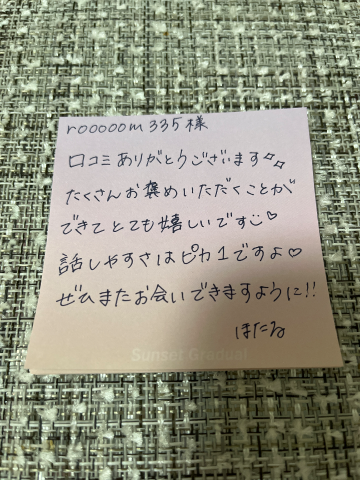 rooooom335様
口コミありがとうございます✨
たくさんお褒めいただくことが
できてとても嬉しいです☺♡
話しやすさはピカ1ですよ♡
ぜひまたお会いできますように!!
ほたる
Sunset Gradual